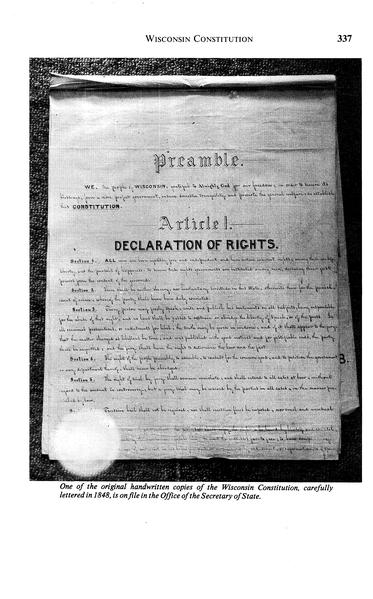 WISCONSIN CONSTITUTION 337
Preamble.
WE, the people of WISCONSIN, grateful to Almighty God for our freedom; in order to secure its
blessings, form a more perfect government, insure domestic tranquility and promote the general welfare; do establish
this CONSTITUTION.
Article I.
DECLARATION OF RIGHTS.
Section 1. ALL men are born equally free and independent and have certain inherent rights; among these are life,
liberty, and the pursuit of happiness. To secure these rights governments are instituted among men, deriving their just
powers from the consent of the governed.
Section 2. There shall be neither slavery nor involuntary servitude in this State, otherwise than for the punish-
ment of crime; whereof the party shall have been duly convicted.
Section 3. Every person may freely speak, write and publish his sentiments on all subjects, being responsible
for the abuse of that right, and no laws shall be passed to restrain or abridge the liberty of speech, or of the press. In
all criminal prosecutions, or indictments for libel, the truth may be given in evidence; and if it shall appear to the jury
that the matter charged as libellous be true, and was published with good motives and for justifiable ends, the party
shall be acquitted; and the jury shall have the right to determine the law and the fact.
Section 4. The right of the people peaceably to assemble, to consult for the common good, and to petition the government
or any department thereof, shall never be abridged.
Section 5. The right of trial by jury shall remain inviolate; and shall extend to all cases at law, without
regard to the amount in controversy; but a jury trial may be waived by the parties in all cases, in the manner pre-
scribed by law.
Excessive bail shall not be required, nor shall excessive fines be imposed, nor cruel and unusual
B.
One of the original handwritten copies of the Wisconsin Constitution, carefully
lettered in 1848, is on file in the Office of the Secretary of State.